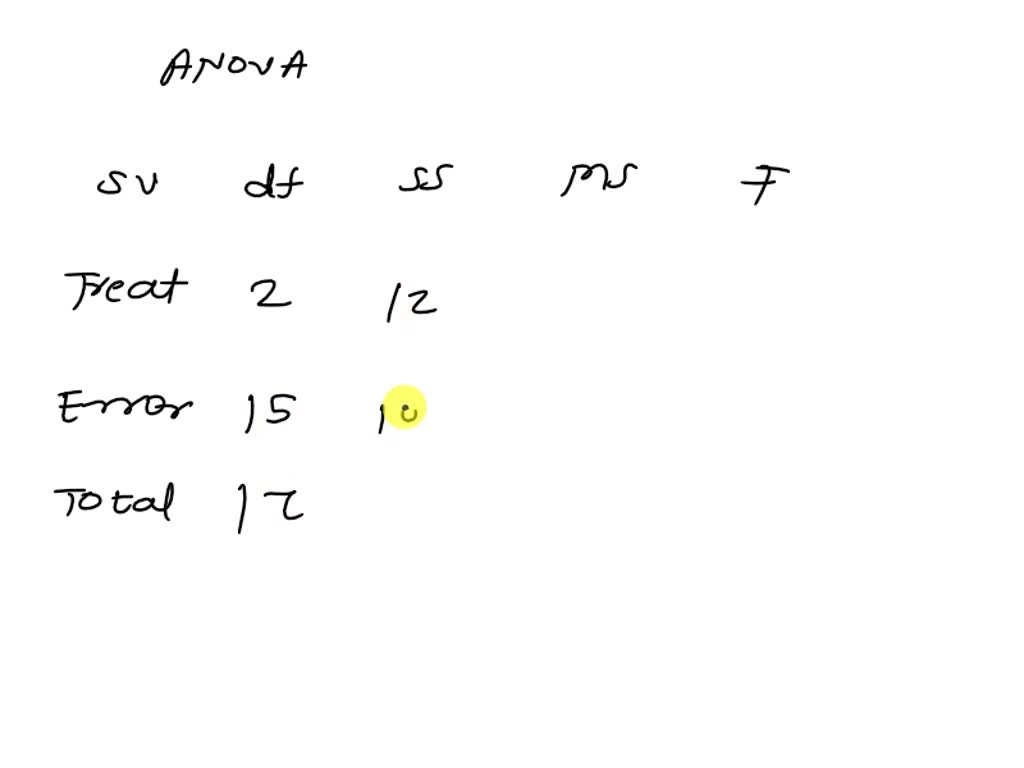 ANOVA
SV df SS MS F
Treat 2 12
Error 15 10
Total 17